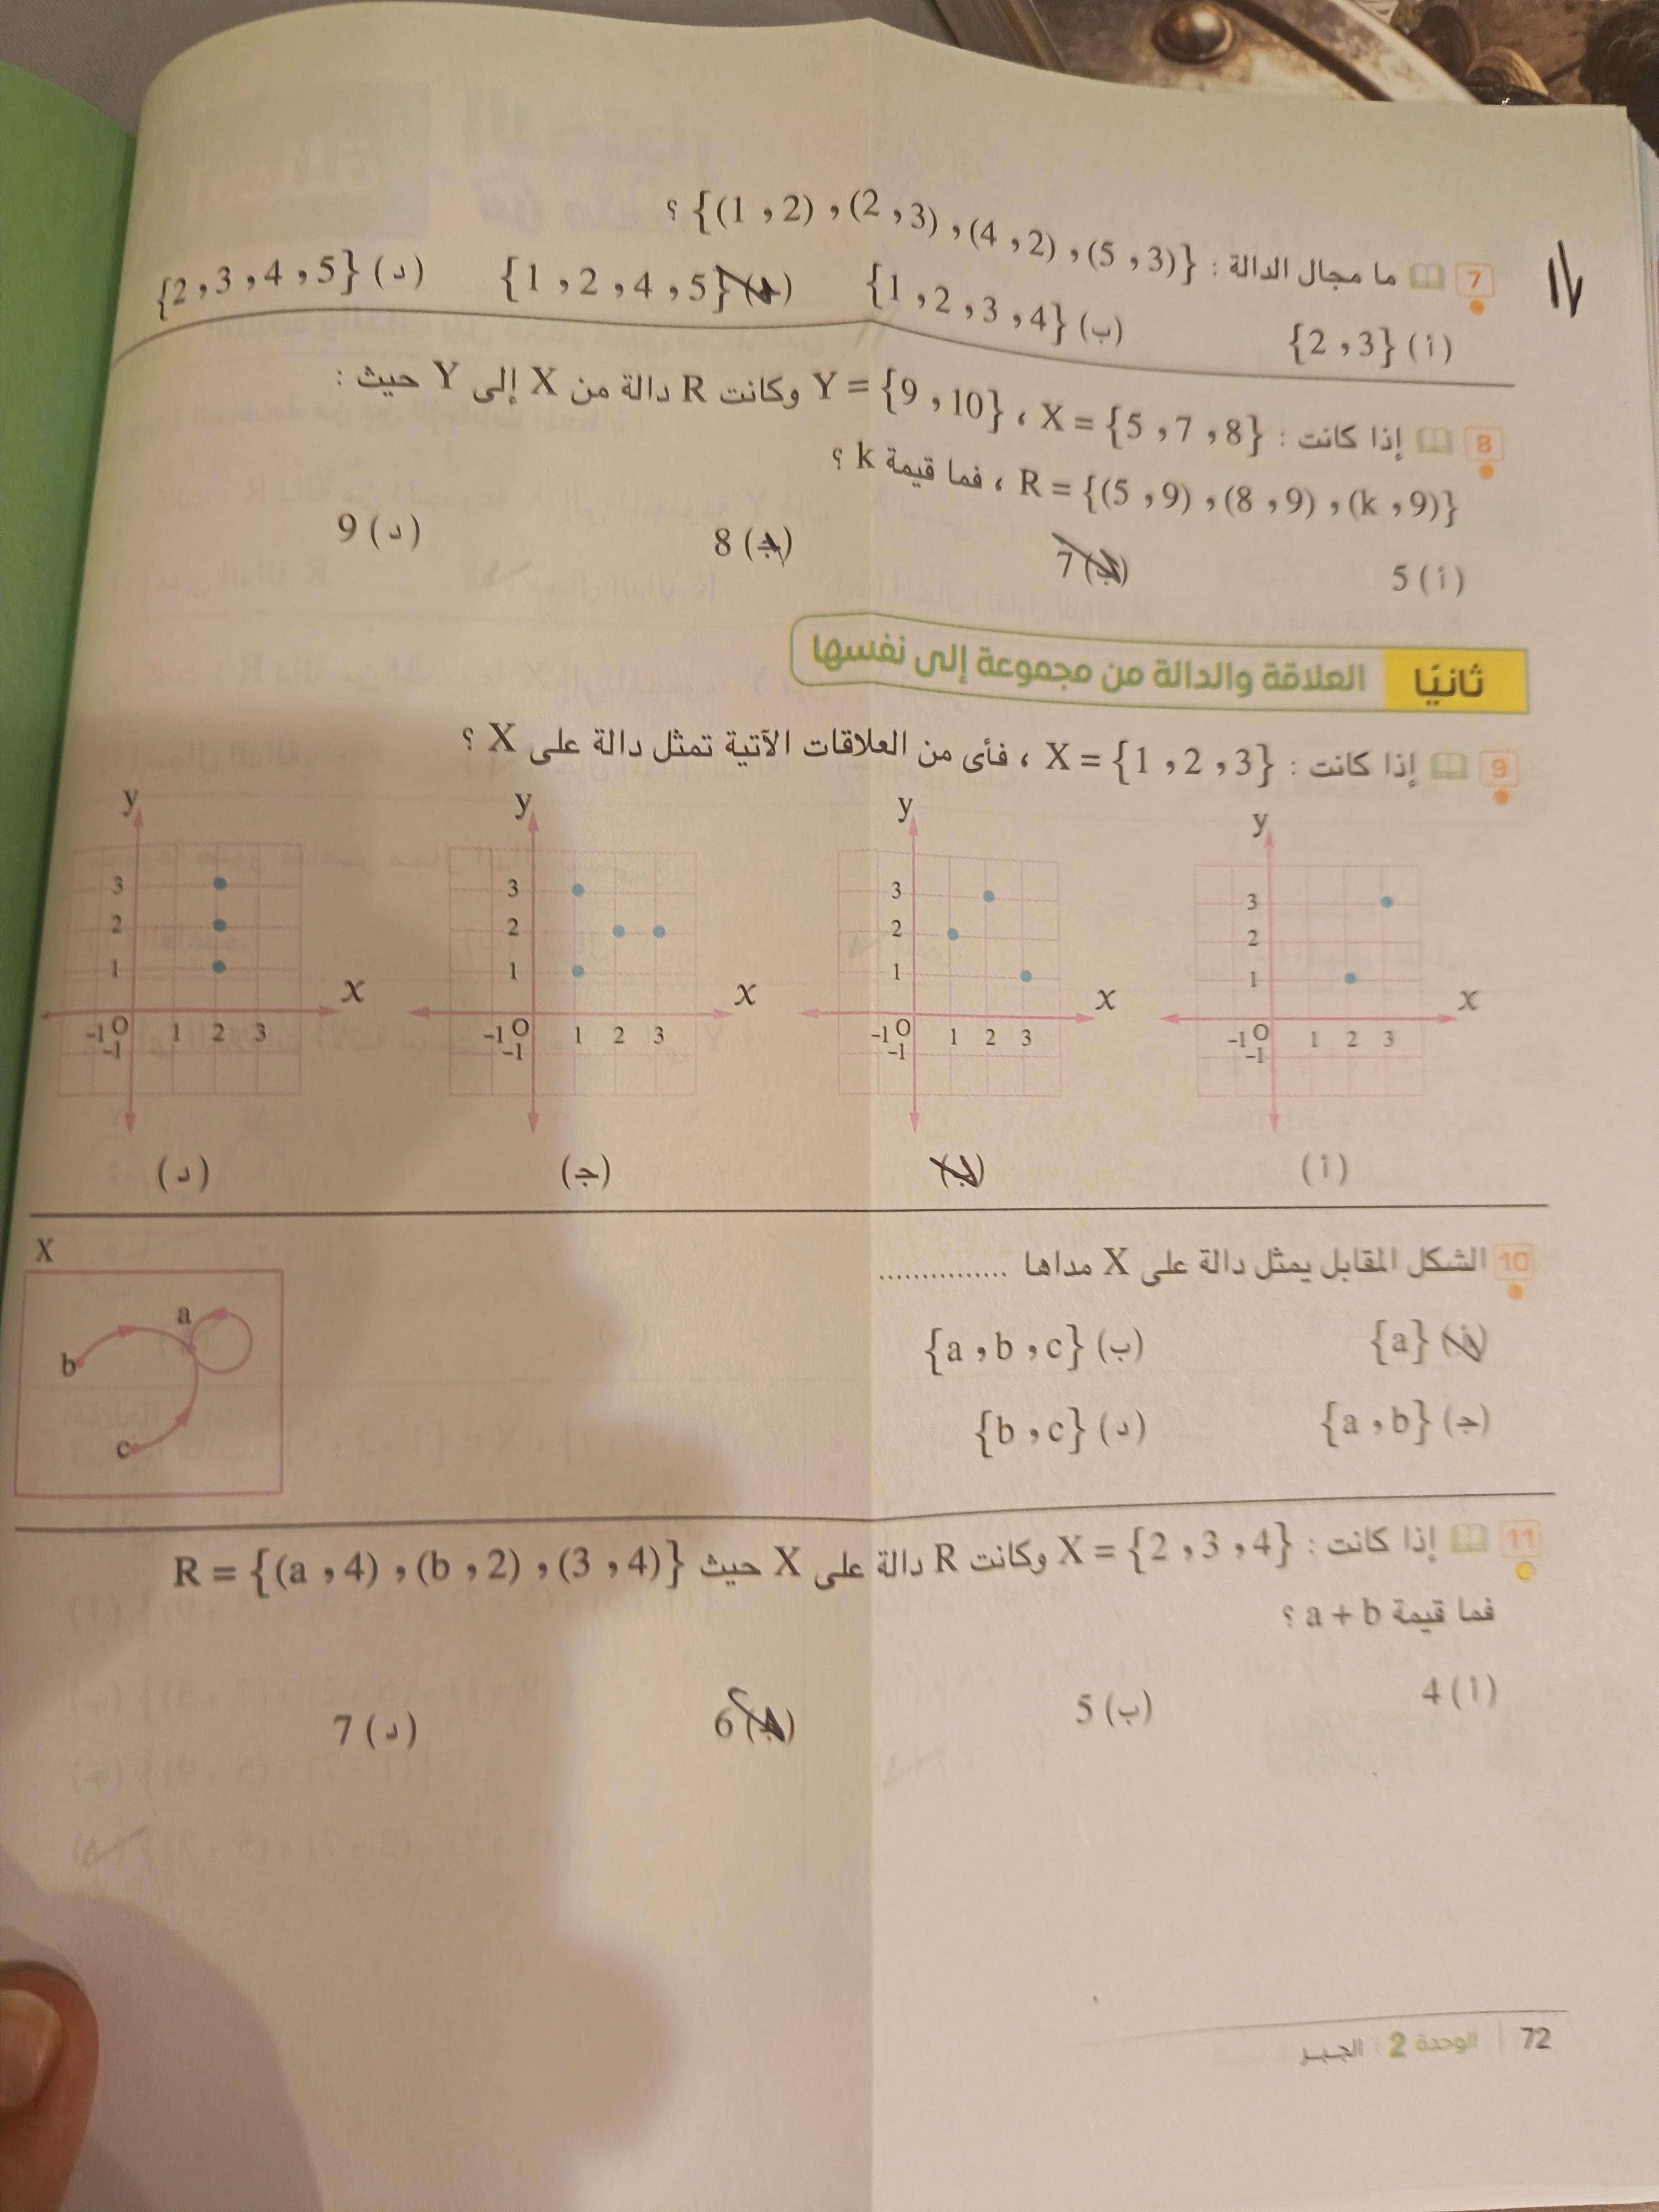 7 ما مجال الدالة : {(1 , 2) , (2 , 3) , (4 , 2) , (5 , 3)} ؟
(أ) {2 , 3} (ب) {1 , 2 , 3 , 4} (جـ) {1 , 2 , 4 , 5} (د) {2 , 3 , 4 , 5}
8 إذا كانت : X = {5 , 7 , 8} ، Y = {9 , 10} وكانت R دالة من X إلى Y حيث :
R = {(5 , 9) , (8 , 9) , (k , 9)} ، فما قيمة k ؟
(أ) 5 (ب) 7 (جـ) 8 (د) 9
ثانيًا العلاقة والدالة من مجموعة إلى نفسها
9 إذا كانت : X = {1 , 2 , 3} ، فأى من العلاقات الآتية تمثل دالة على X ؟
y y y y
3 3 3 3
2 2 2 2
1 1 1 1
x x x x
-1 O 1 2 3 -1 O 1 2 3 -1 O 1 2 3 -1 O 1 2 3
-1 -1 -1 -1
(أ) (ب) (جـ) (د)
10 الشكل المقابل يمثل دالة على X مداها ...............
(أ) {a} (ب) {a , b , c}
(جـ) {a , b} (د) {b , c}
X
a
b
c
11 إذا كانت : X = {2 , 3 , 4} وكانت R دالة على X حيث R = {(a , 4) , (b , 2) , (3 , 4)}
فما قيمة a + b ؟
(أ) 4 (ب) 5 (جـ) 6 (د) 7
72 | الوحدة 2 : الجبر